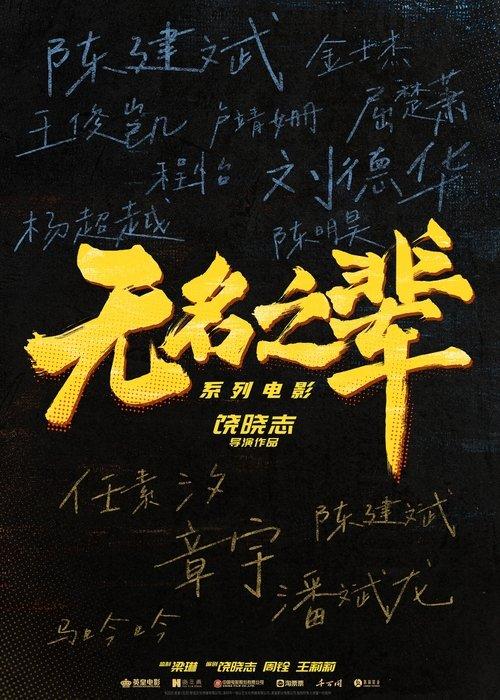 陈建斌 金士杰
王俊凯 卢靖姗 屈楚萧
程怡 刘德华
杨超越 陈明昊
无名之辈
系列电影
饶晓志
导演作品
任素汐 陈建斌
章宇 潘斌龙
马吟吟
监制 梁琳 编剧 饶晓志 周铨 王莉莉
英皇电影 中国电影股份有限公司 淘票票